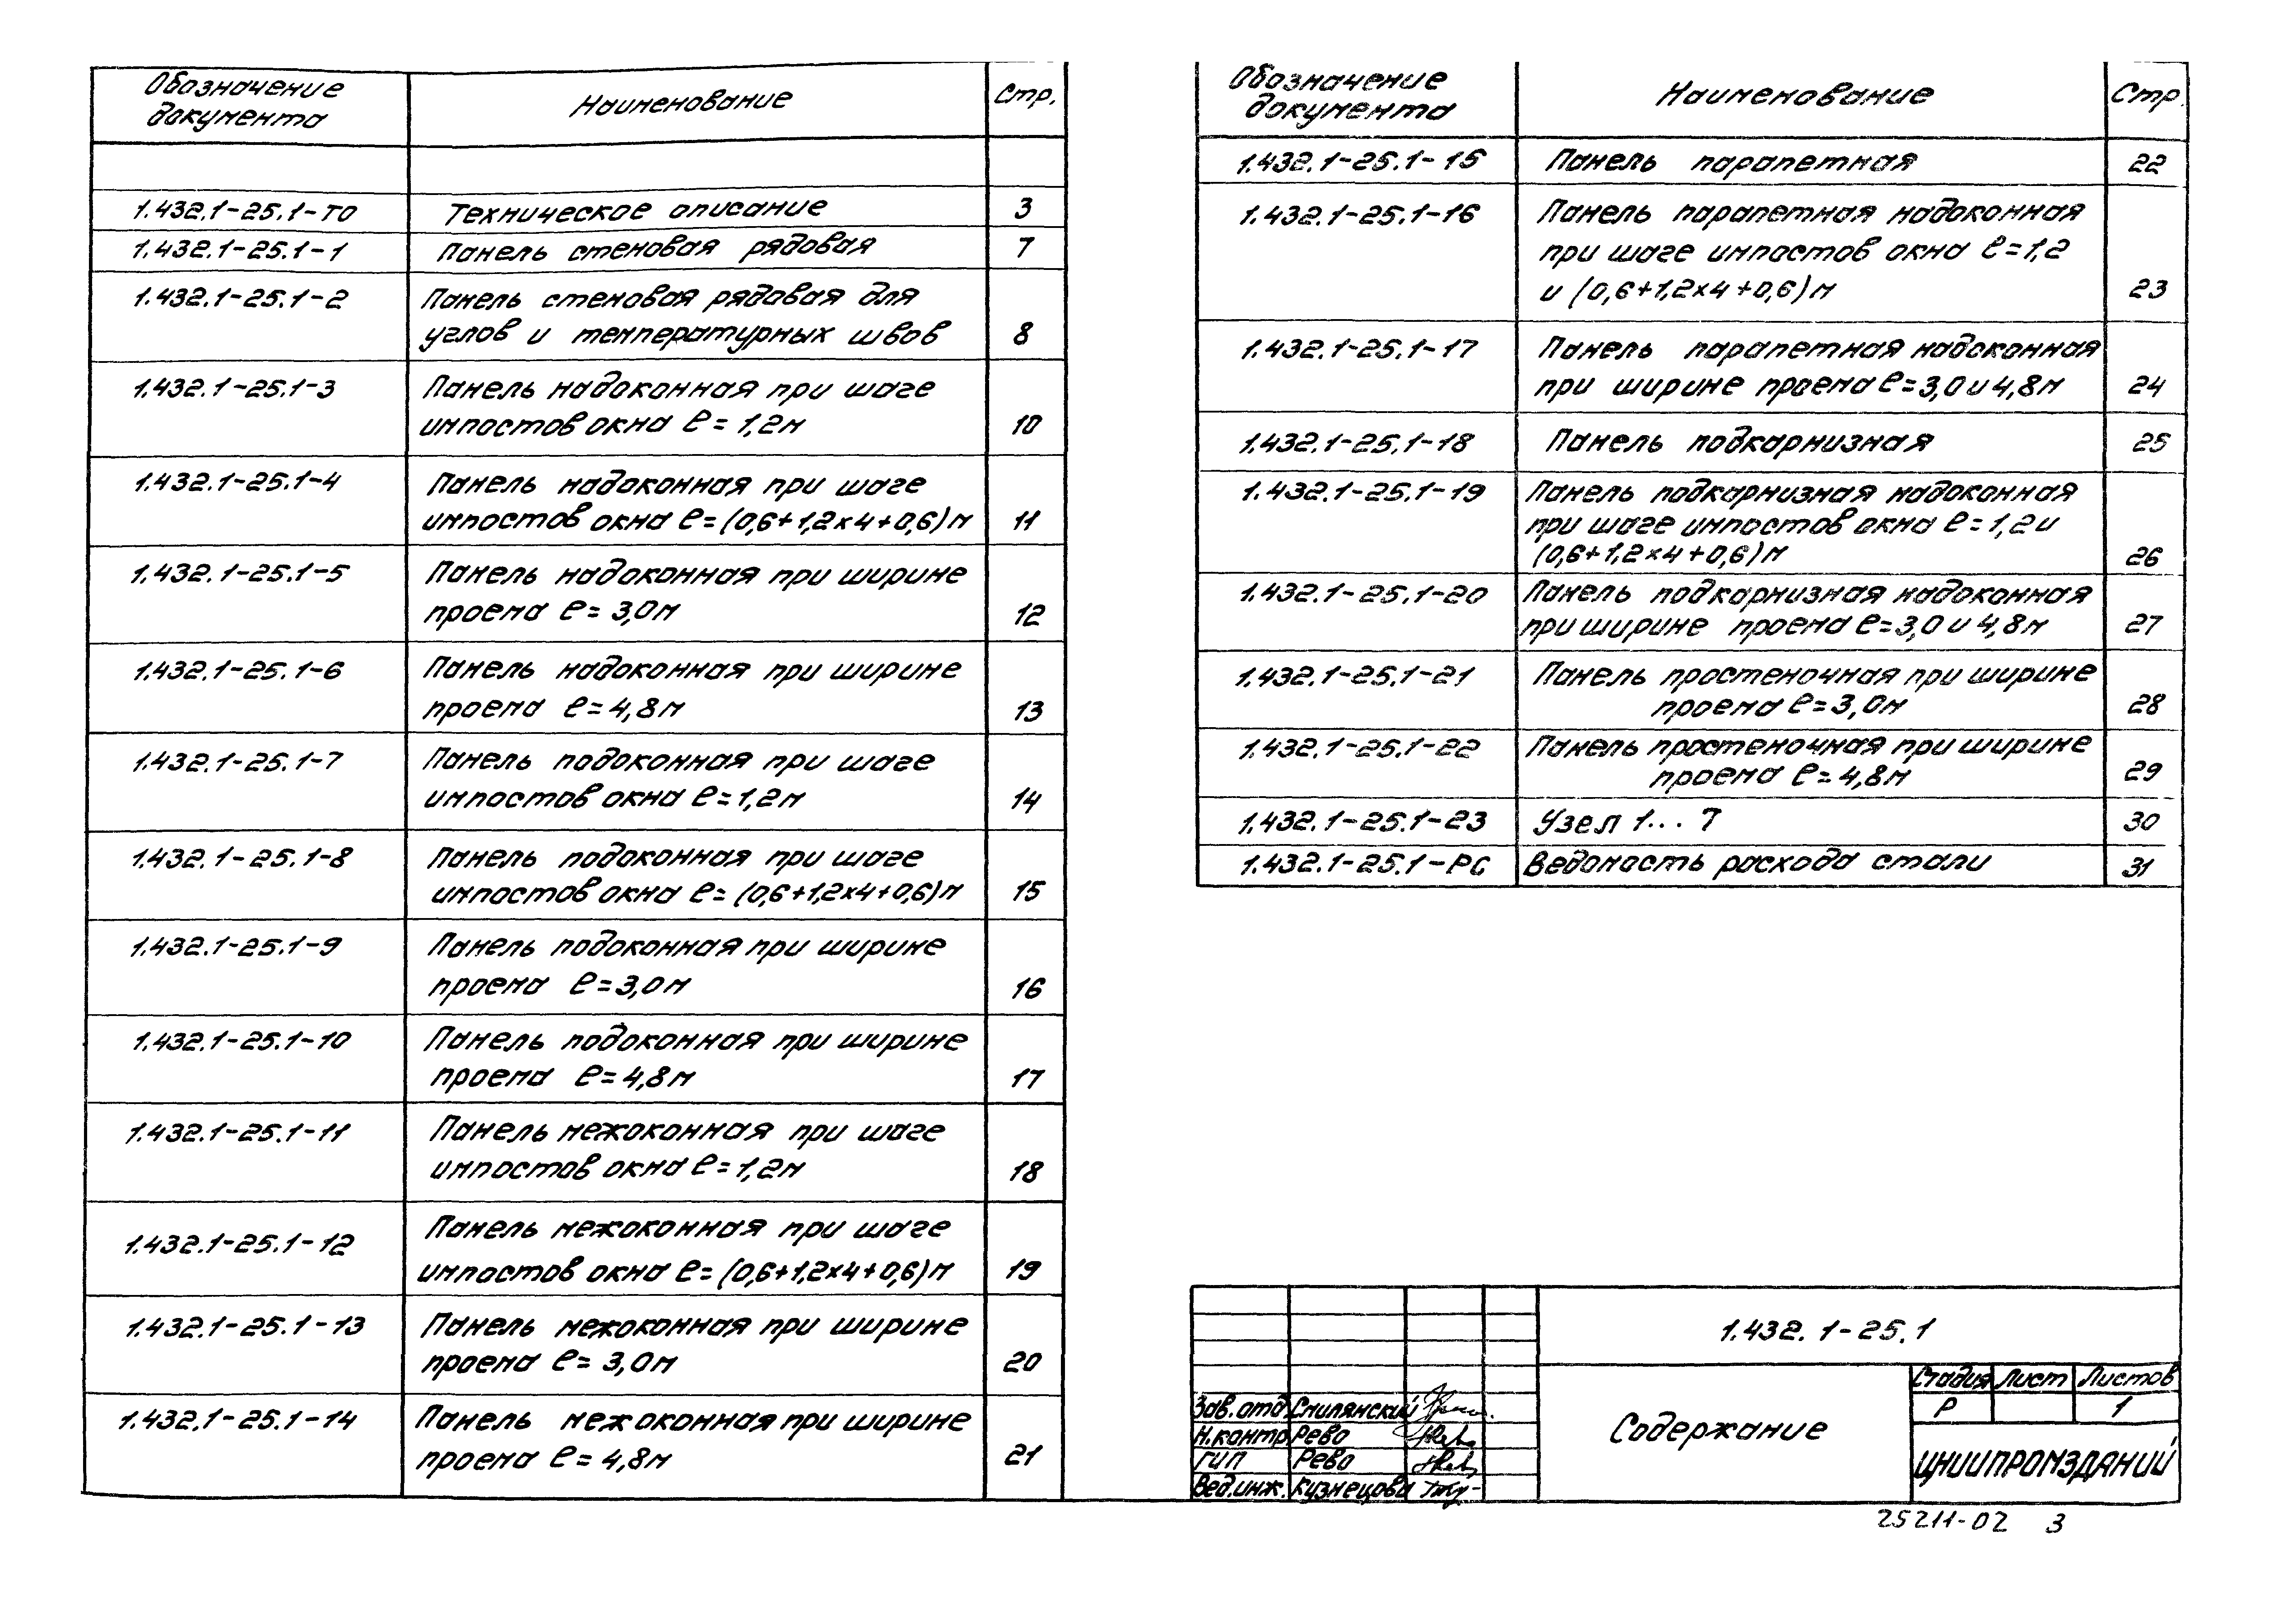 Обозначение документа Наименование Стр.
1.432.1-25.1-ТО Техническое описание 3
1.432.1-25.1-1 Панель стеновая рядовая 7
1.432.1-25.1-2 Панель стеновая рядовая для
углов и температурных швов 8
1.432.1-25.1-3 Панель надоконная при шаге
импостов окна ℓ= 1,2м 10
1.432.1-25.1-4 Панель надоконная при шаге
импостов окна ℓ=(0,6+1,2×4+0,6)м 11
1.432.1-25.1-5 Панель надоконная при ширине
проема ℓ= 3,0м 12
1.432.1-25.1-6 Панель надоконная при ширине
проема ℓ=4,8м 13
1.432.1-25.1-7 Панель подоконная при шаге
импостов окна ℓ=1,2м 14
1.432.1-25.1-8 Панель подоконная при шаге
импостов окна ℓ=(0,6+1,2×4+0,6)м 15
1.432.1-25.1-9 Панель подоконная при ширине
проема ℓ=3,0м 16
1.432.1-25.1-10 Панель подоконная при ширине
проема ℓ=4,8м 17
1.432.1-25.1-11 Панель межоконная при шаге
импостов окна ℓ=1,2м 18
1.432.1-25.1-12 Панель межоконная при шаге
импостов окна ℓ=(0,6+1,2×4+0,6)м 19
1.432.1-25.1-13 Панель межоконная при ширине
проема ℓ= 3,0м 20
1.432.1-25.1-14 Панель межоконная при ширине
проема ℓ= 4,8м 21
Обозначение документа Наименование Стр.
1.432.1-25.1-15 Панель парапетная 22
1.432.1-25.1-16 Панель парапетная надоконная
при шаге импостов окна ℓ=1,2
и (0,6+1,2×4+0,6)м 23
1.432.1-25.1-17 Панель парапетная надоконная
при ширине проема ℓ=3,0 и 4,8м 24
1.432.1-25.1-18 Панель подкарнизная 25
1.432.1-25.1-19 Панель подкарнизная надоконная
при шаге импостов окна ℓ=1,2 и
(0,6+1,2×4+0,6)м 26
1.432.1-25.1-20 Панель подкарнизная надоконная
при ширине проема ℓ=3,0 и 4,8м 27
1.432.1-25.1-21 Панель простеночная при ширине
проема ℓ=3,0м 28
1.432.1-25.1-22 Панель простеночная при ширине
проема ℓ=4,8м 29
1.432.1-25.1-23 Узел 1...7 30
1.432.1-25.1-РС Ведомость расхода стали 31
1.432.1-25.1
Зав.отд. Смилянский
Н.контр Рево
ГИП Рево
Вед.инж. Кузнецова
Содержание
Стадия Лист Листов
Р 1
ЦНИИПРОМЗДАНИЙ
25211-02 3